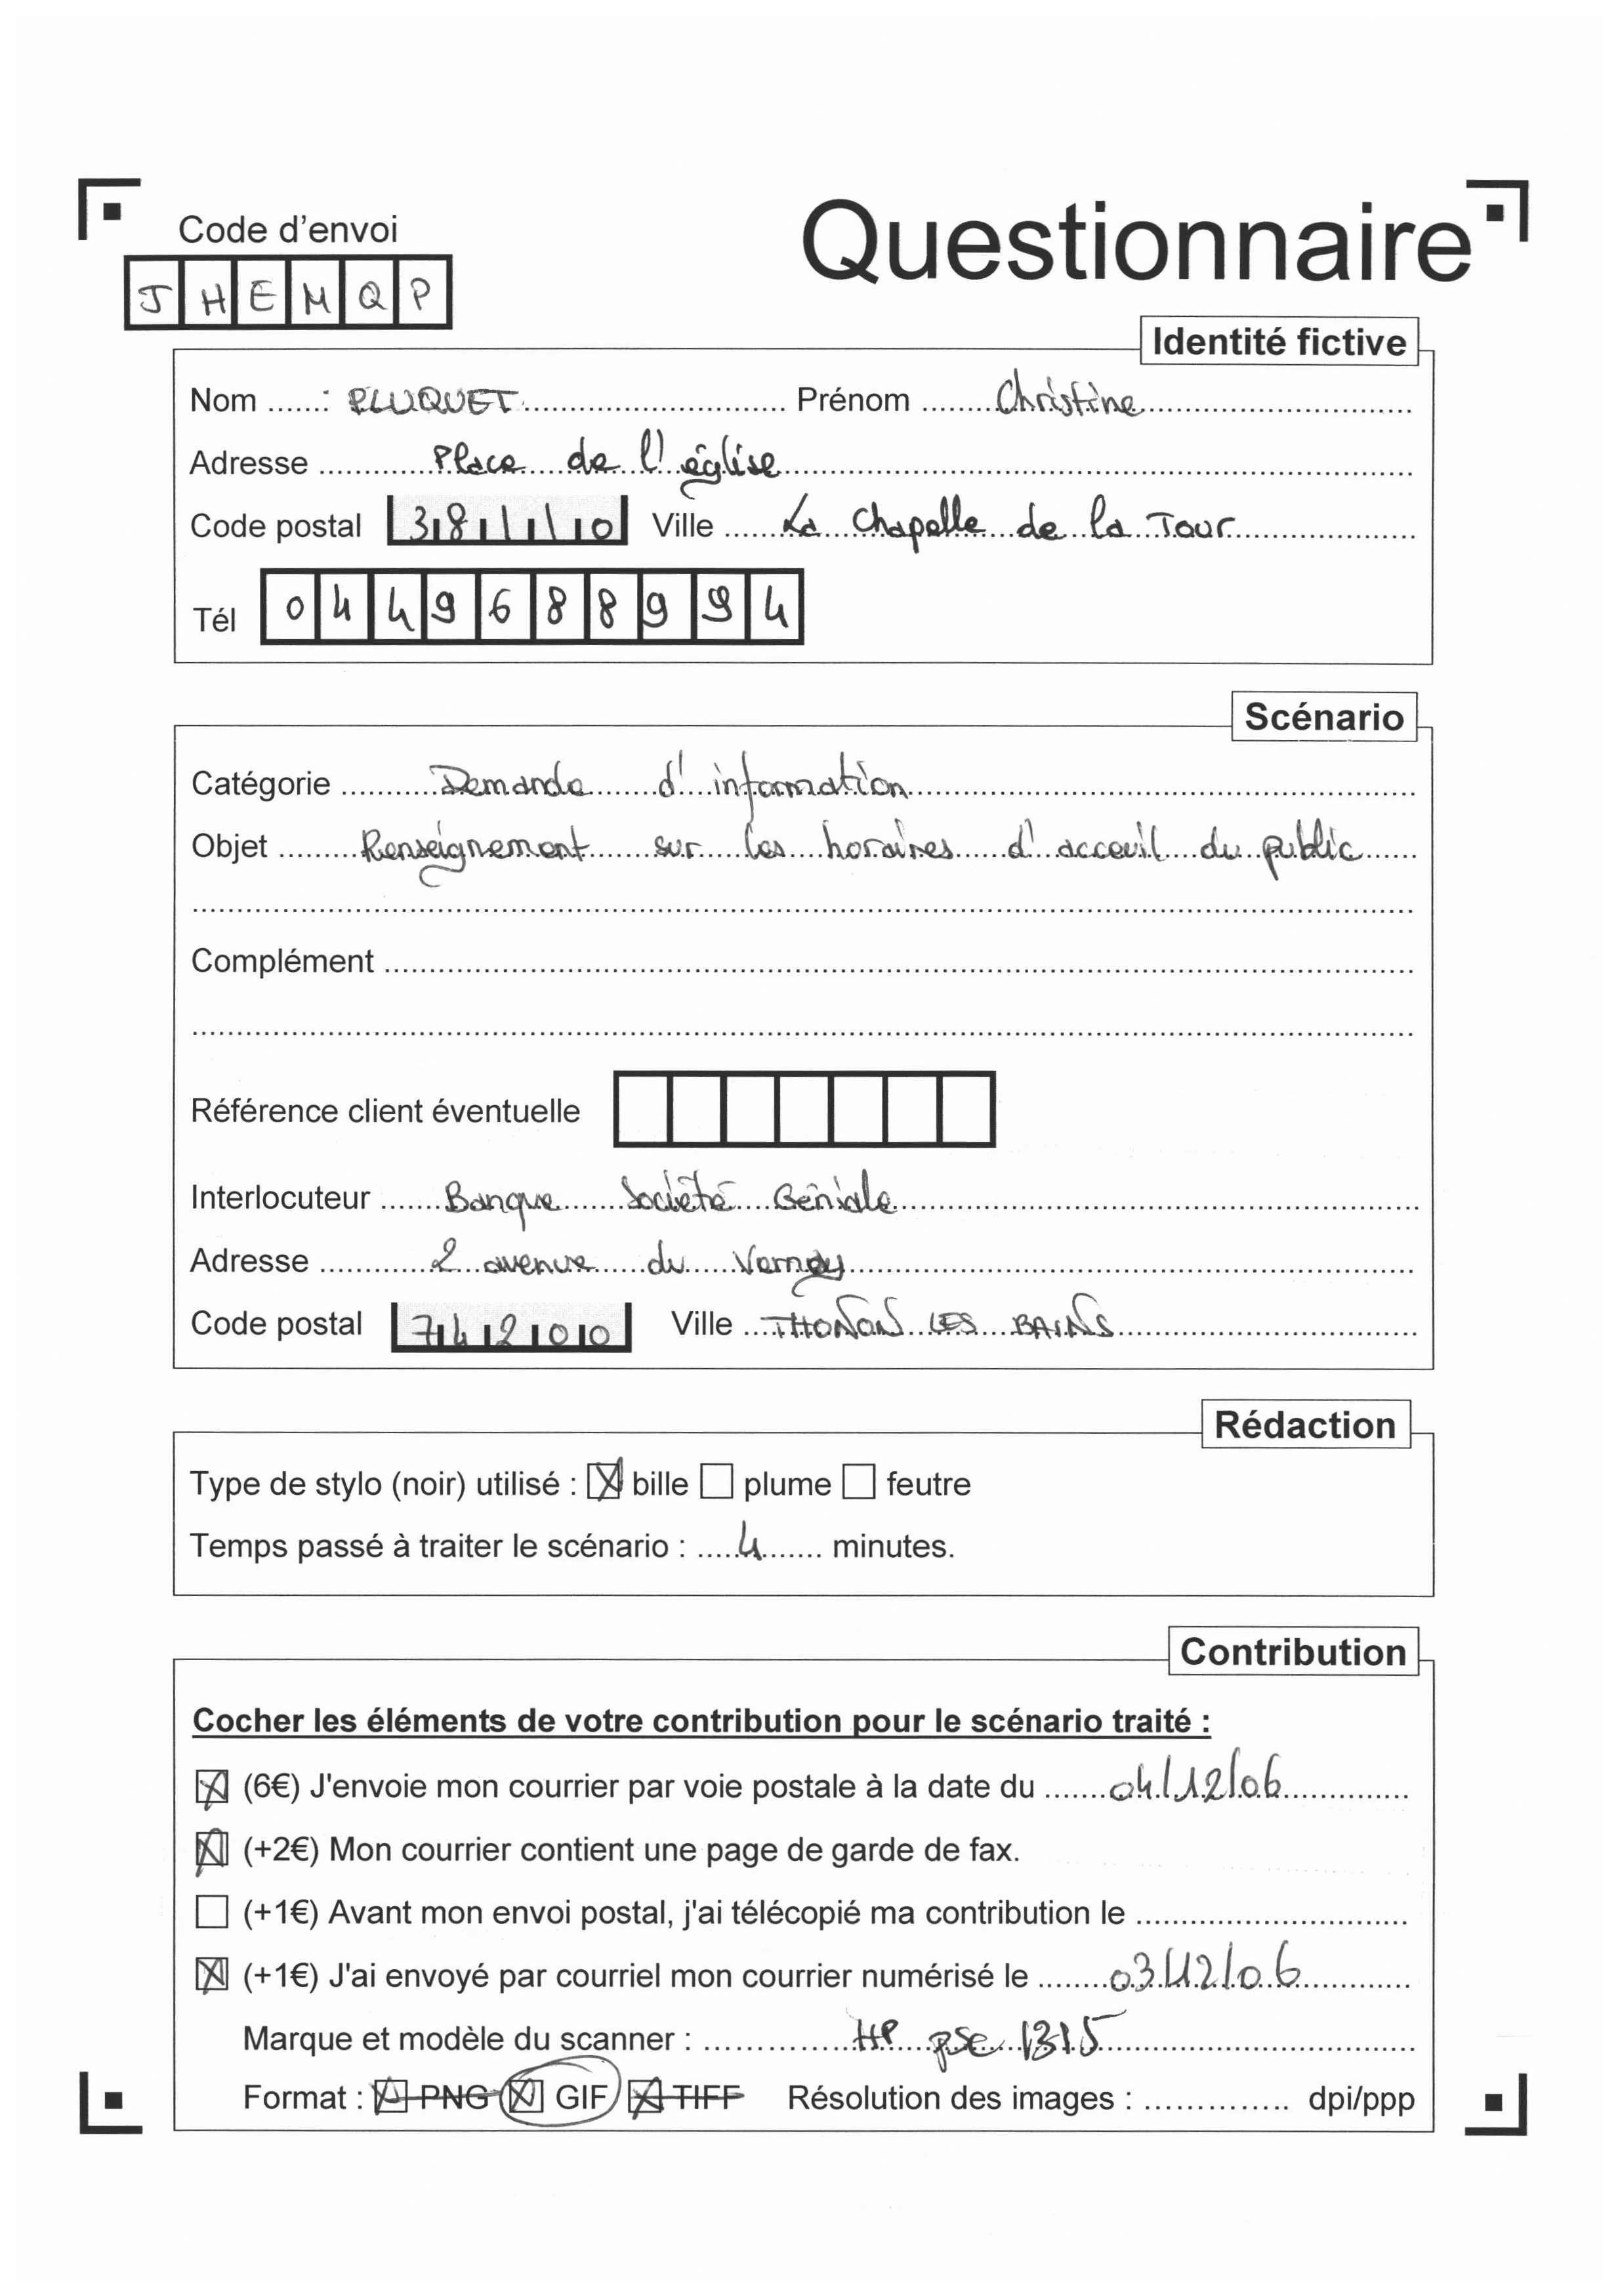 Code d'envoi
Questionnaire
J H E M Q P
Identité fictive
Nom ......: PLUQUET Prénom Christine
Adresse Place de l'église
Code postal 38110 Ville La Chapelle de la Tour
Tél 0449688994
Scénario
Catégorie Demande d'information
Objet Renseignement sur les horaires d'acceuil du public
Complément
Référence client éventuelle
Interlocuteur Banque Société Géniale
Adresse 2 avenue du Vernay
Code postal 74200 Ville THONON LES BAINS
Rédaction
Type de stylo (noir) utilisé : ☒ bille ☐ plume ☐ feutre
Temps passé à traiter le scénario : 4 minutes.
Contribution
Cocher les éléments de votre contribution pour le scénario traité :
☒ (6€) J'envoie mon courrier par voie postale à la date du 04/12/06
☒ (+2€) Mon courrier contient une page de garde de fax.
☐ (+1€) Avant mon envoi postal, j'ai télécopié ma contribution le
☒ (+1€) J'ai envoyé par courriel mon courrier numérisé le 03/12/06
Marque et modèle du scanner : HP psc 1315
Format : ☒ PNG ☒ GIF ☒ TIFF Résolution des images : dpi/ppp